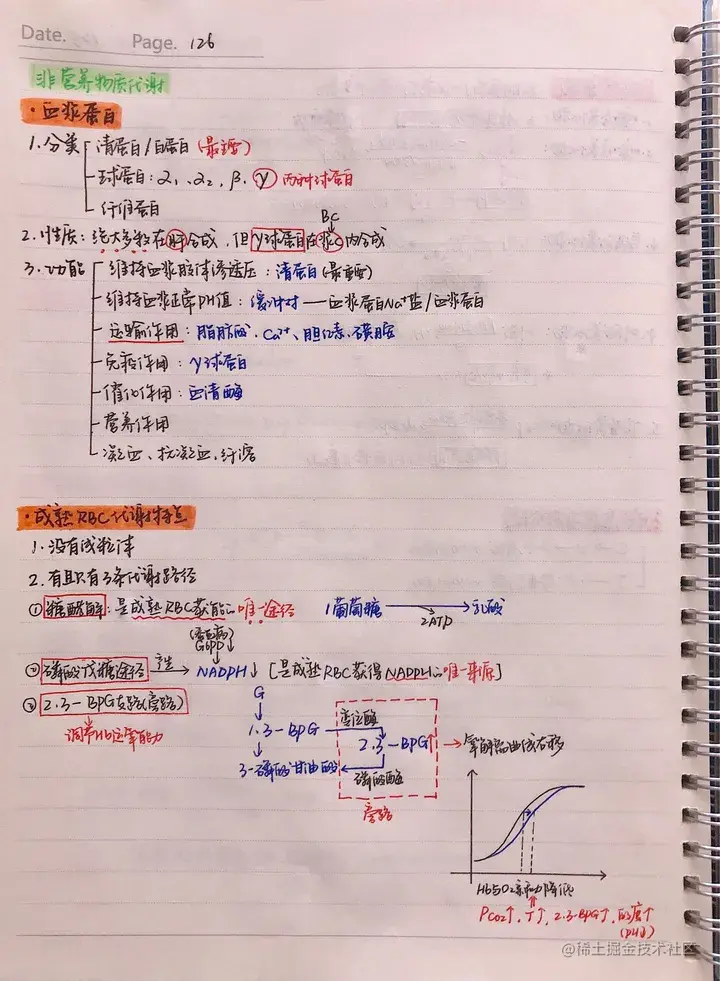 Date.
Page. 126
非营养物质代谢
·血浆蛋白
1.分类
清蛋白/白蛋白(最主要)
球蛋白:α1、α2、β、γ 丙种球蛋白
纤维蛋白
BC
2.性质:绝大多数在肝合成,但γ球蛋白在浆C内合成
3.功能
维持血浆胶体渗透压:清蛋白(最主要)
维持血浆正常PH值:缓冲对——血浆蛋白Na+盐/血浆蛋白
运输作用:脂肪酸、Ca2+、胆红素、磺胺
免疫作用:γ球蛋白
催化作用:血清酶
营养作用
凝血、抗凝血、纤溶
·成熟RBC代谢特点
1.没有线粒体
2.有且只有3条代谢路径
①糖酵解:是成熟RBC获能的唯一途径 1葡萄糖 → 乳酸
2ATP
(蚕豆病)
G6PD↓
②磷酸戊糖途径 产生→ NADPH↓ [是成熟RBC获得NADPH的唯一来源]
③2.3-BPG支路(旁路)
调节Hb运氧能力
G
1.3-BPG 变位酶 2.3-BPG↑ →氧解离曲线右移
3-磷酸甘油酸 磷酸酶
旁路
Hb与O2亲和力降低
PCO2↑、T↑、2.3-BPG↑、酸度↑
(pH↓)
@稀土掘金技术社区